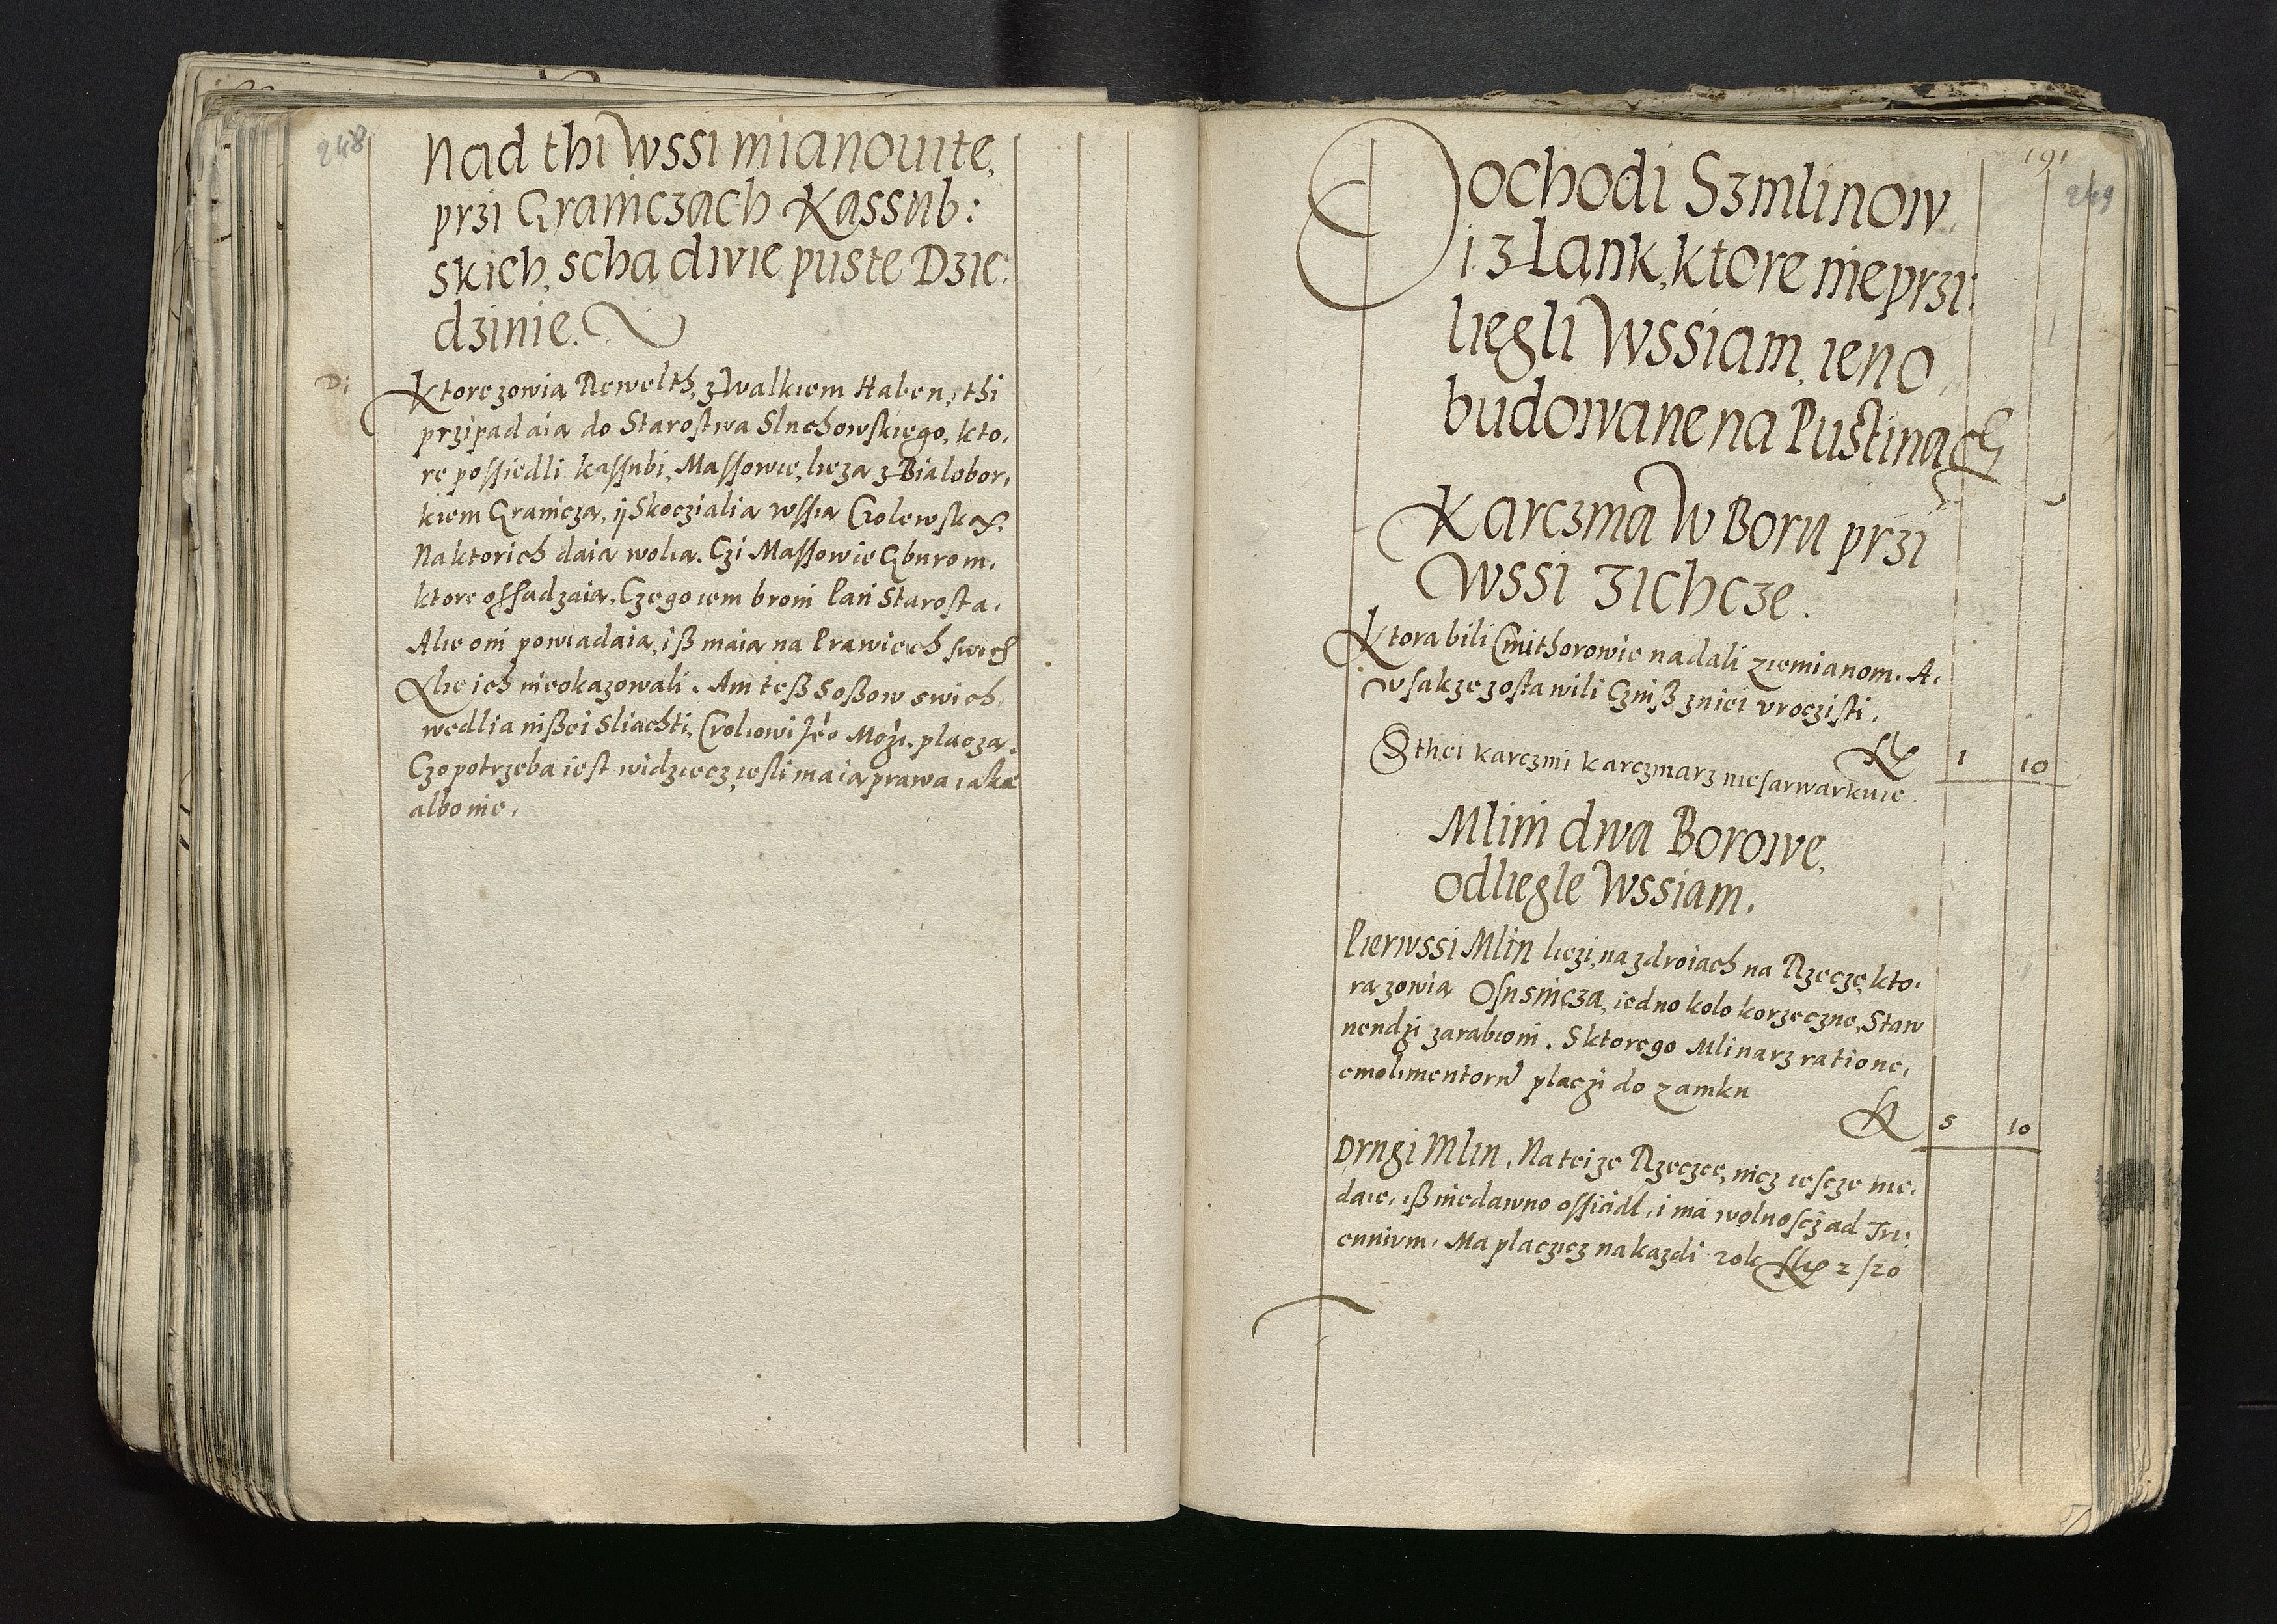 248
Nad thi Wssi mianouite,
przi Graniczach Kassub:
skich, scha dwie puste Dzie:
dzinie.
Ktore zowia Newelth, z Walkiem Haben, thi
przipadaia do Starostwa Sluchowskiego, kto,
re possiedli kassubi, Massowie, lieza z Bialobor,
kiem Granicza, ÿ Skoczialia wssia Crolewska.
Na ktorich daia wolia. Czi Massowie Gburom,
ktore ossadzaia, Czego iem broni Pan Starosta,
Alie oni powiadaia, iß maia na Prawiech swich
Alie ich nieokazowali. Ani teß Soßow swich,
wedlia nißei Sliachti, Croliowi Je̓o Moẏi, placza.
Czo potrzeba iest widziecz, iesli maia prawa iakie
albo nie.
191
249
Dochodi S zmlinow
i z Lank, ktore nieprzi:
liegli Wssiam, ieno,
budowane na Pustinach
Karczma W Boru przi
Wssi Zichcze.
Ktora bili Cmithorowie nadali ziemianom. A,
wsakze zostawili Czinß zniei uroczisti.
1 10
S thei karczmi karczmarz nie sarwarkuie
Mlini dwa Borowe,
Odliegle Wssiam.
Pierwssi Mlin liezi, na zdroiach na Rzecze, kto,
ra zowia Osusnicza, iedno kolo korzeczne, Staw
nendzi zarabioni. S ktorego Mlinarz ratione,
emolimentorũ placzi do zamku
5 10
Drugi Mlin, Na teize Rzeczce, nicz iescze nie,
daie, iß niedawno ossiadl, i ma wolnoscz ad Tri:
ennium. Ma placzicz na kazdi rok 2 / 20